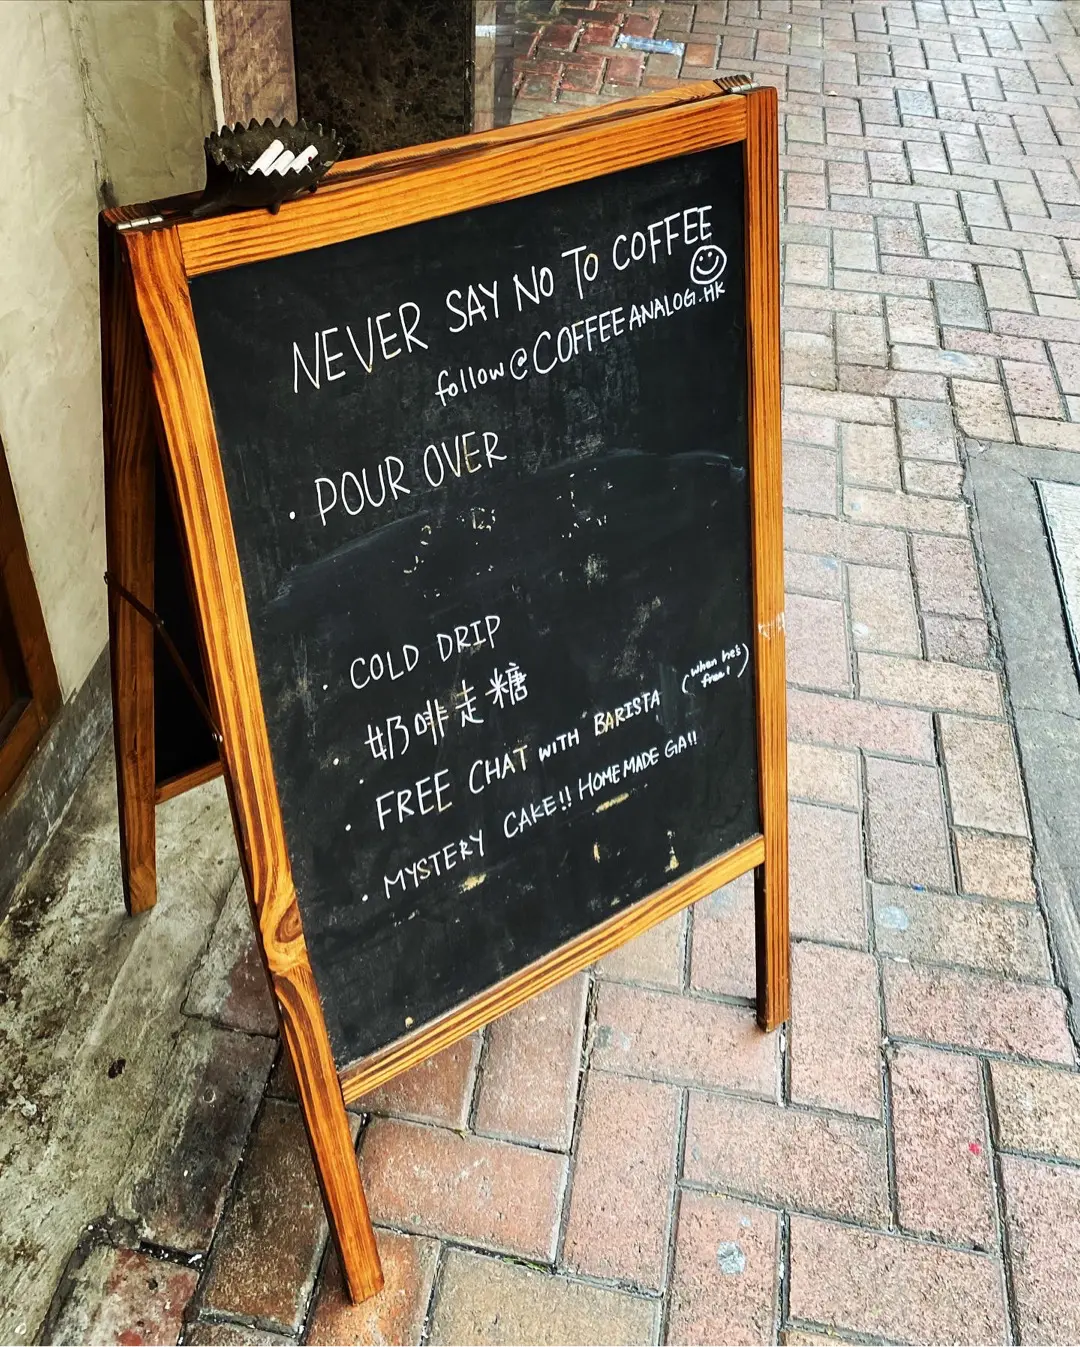 NEVER SAY NO TO COFFEE
follow @COFFEEANALOG.HK
· POUR OVER
· COLD DRIP
· 奶啡走糖
· FREE CHAT WITH BARISTA (when he's free!)
· MYSTERY CAKE!! HOMEMADE GA!!